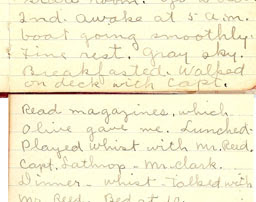 2nd. awake at 5 a.m.
boat going smoothly.
Fine rest. Gray sky.
Breakfasted. Walked
on deck with Capt.
Read magazines, which
Olive gave me. Lunched.
Played Whist with Mr. Reed.
Capt. Lathrop - Mr. Clark.
Dinner - whist - Talked with
Mr. Reed. Bed at 10